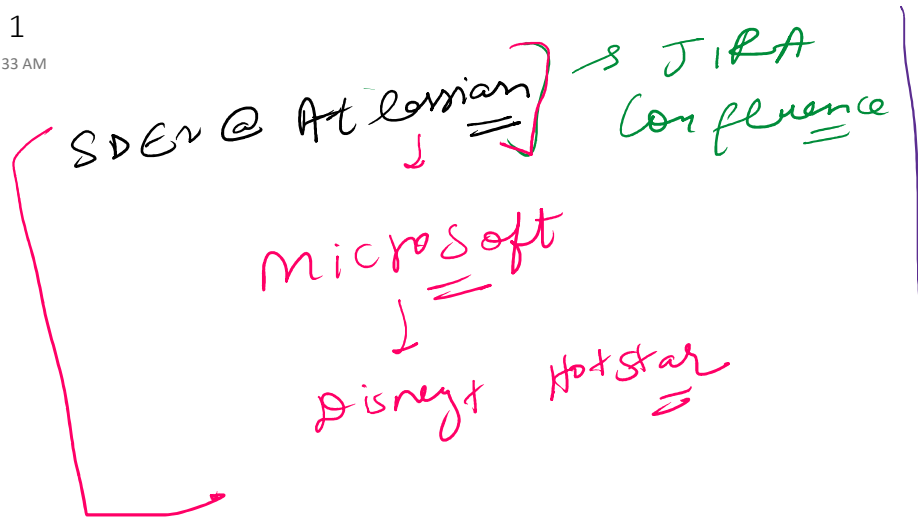 1
33 AM
SDEW @ Atlassian → JIRA
Confluence
Microsoft
Disney+ Hotstar